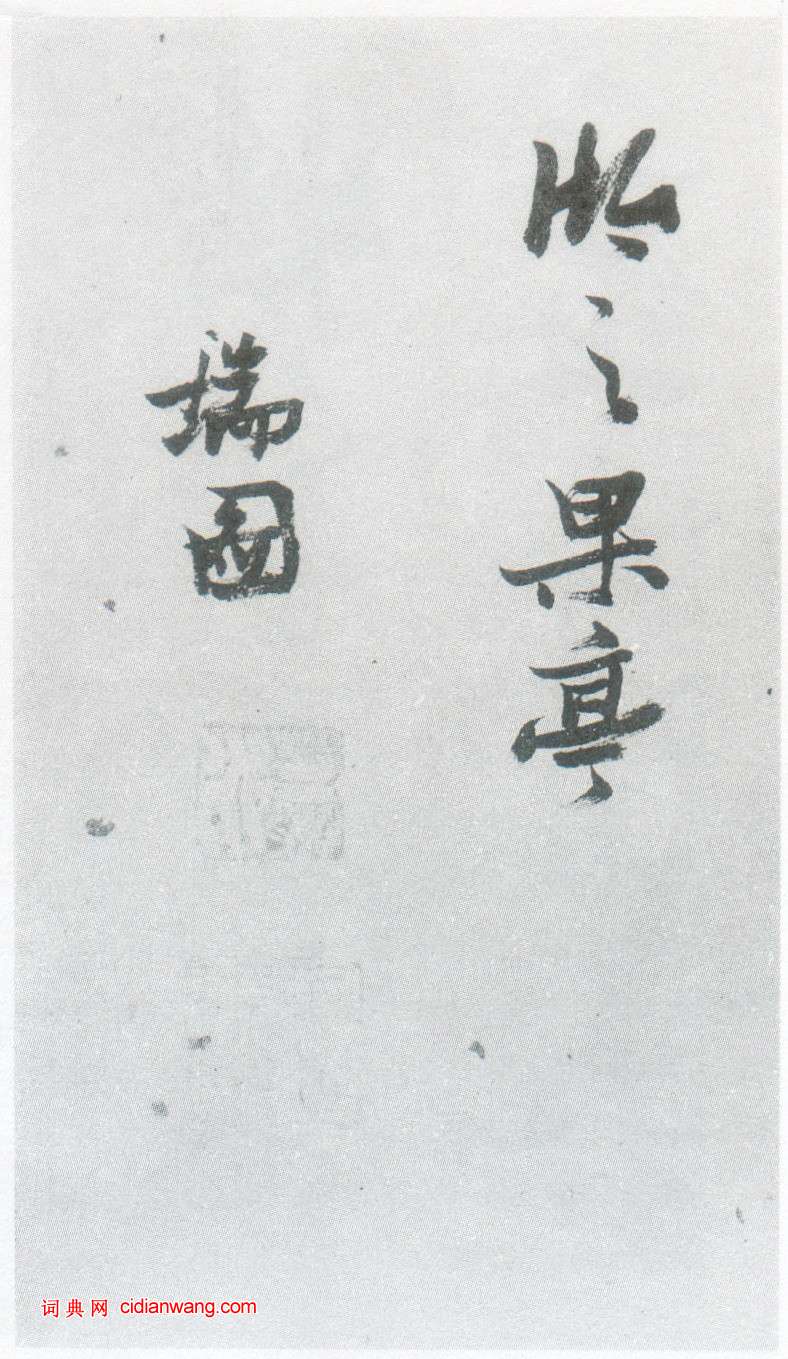 於之果亭
瑞圖
词典网 cidianwang.com